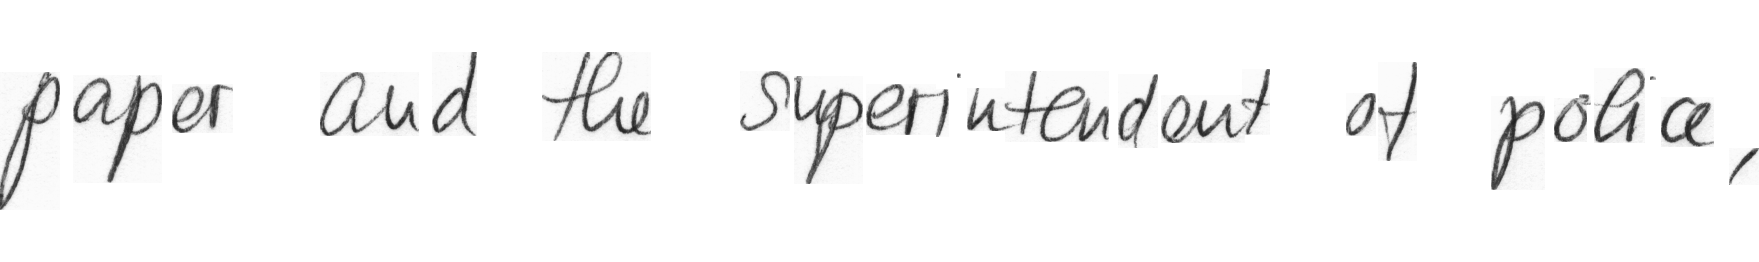 paper and the superintendent of police,